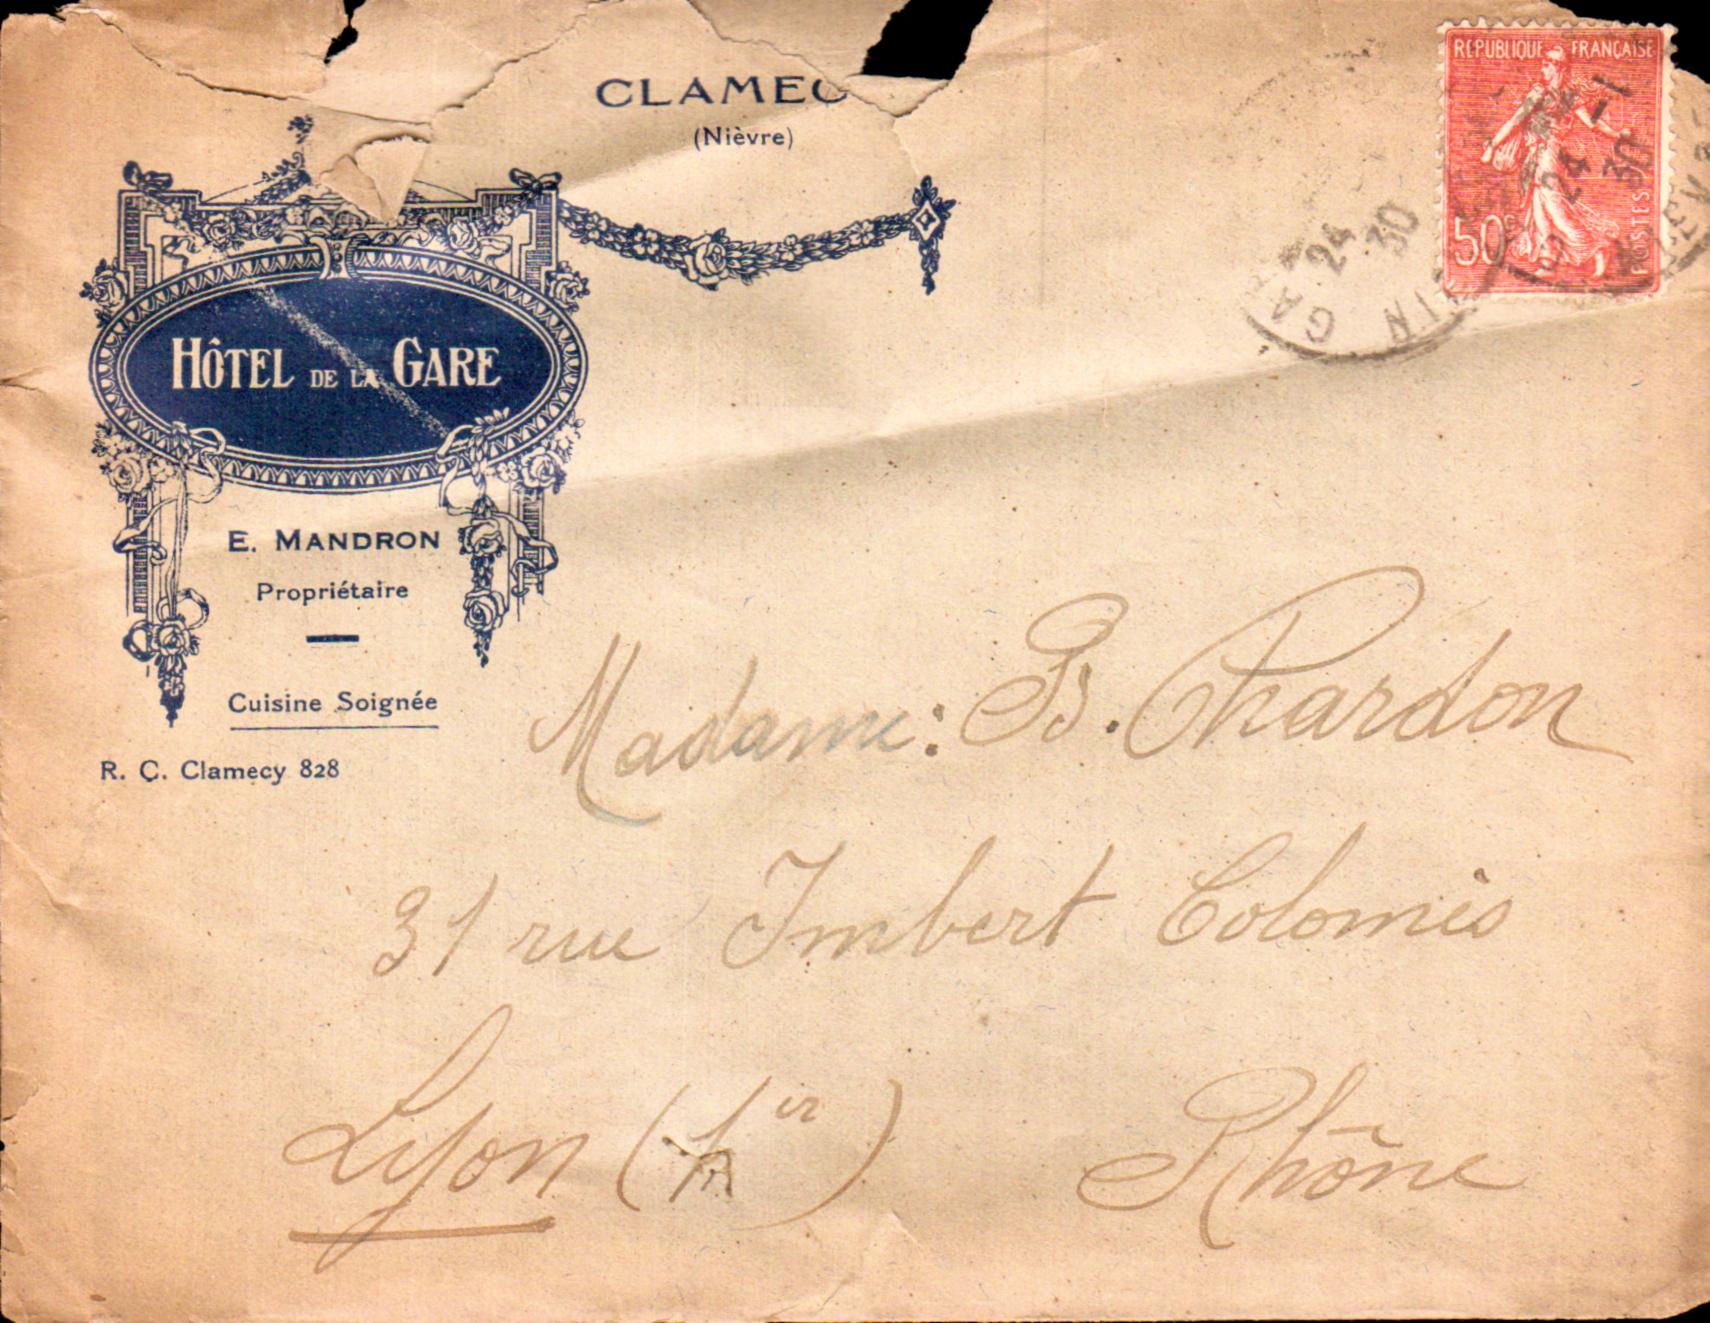 CLAMEC
(Nièvre)
RÉPUBLIQUE FRANÇAISE
50c
POSTES
24
30
24
30
HÔTEL DE LA GARE
E. MANDRON
Propriétaire
Cuisine Soignée
R. C. Clamecy 828
Madame: B. Chardon
31 rue Imbert Colomès
Lyon (1er) Rhône